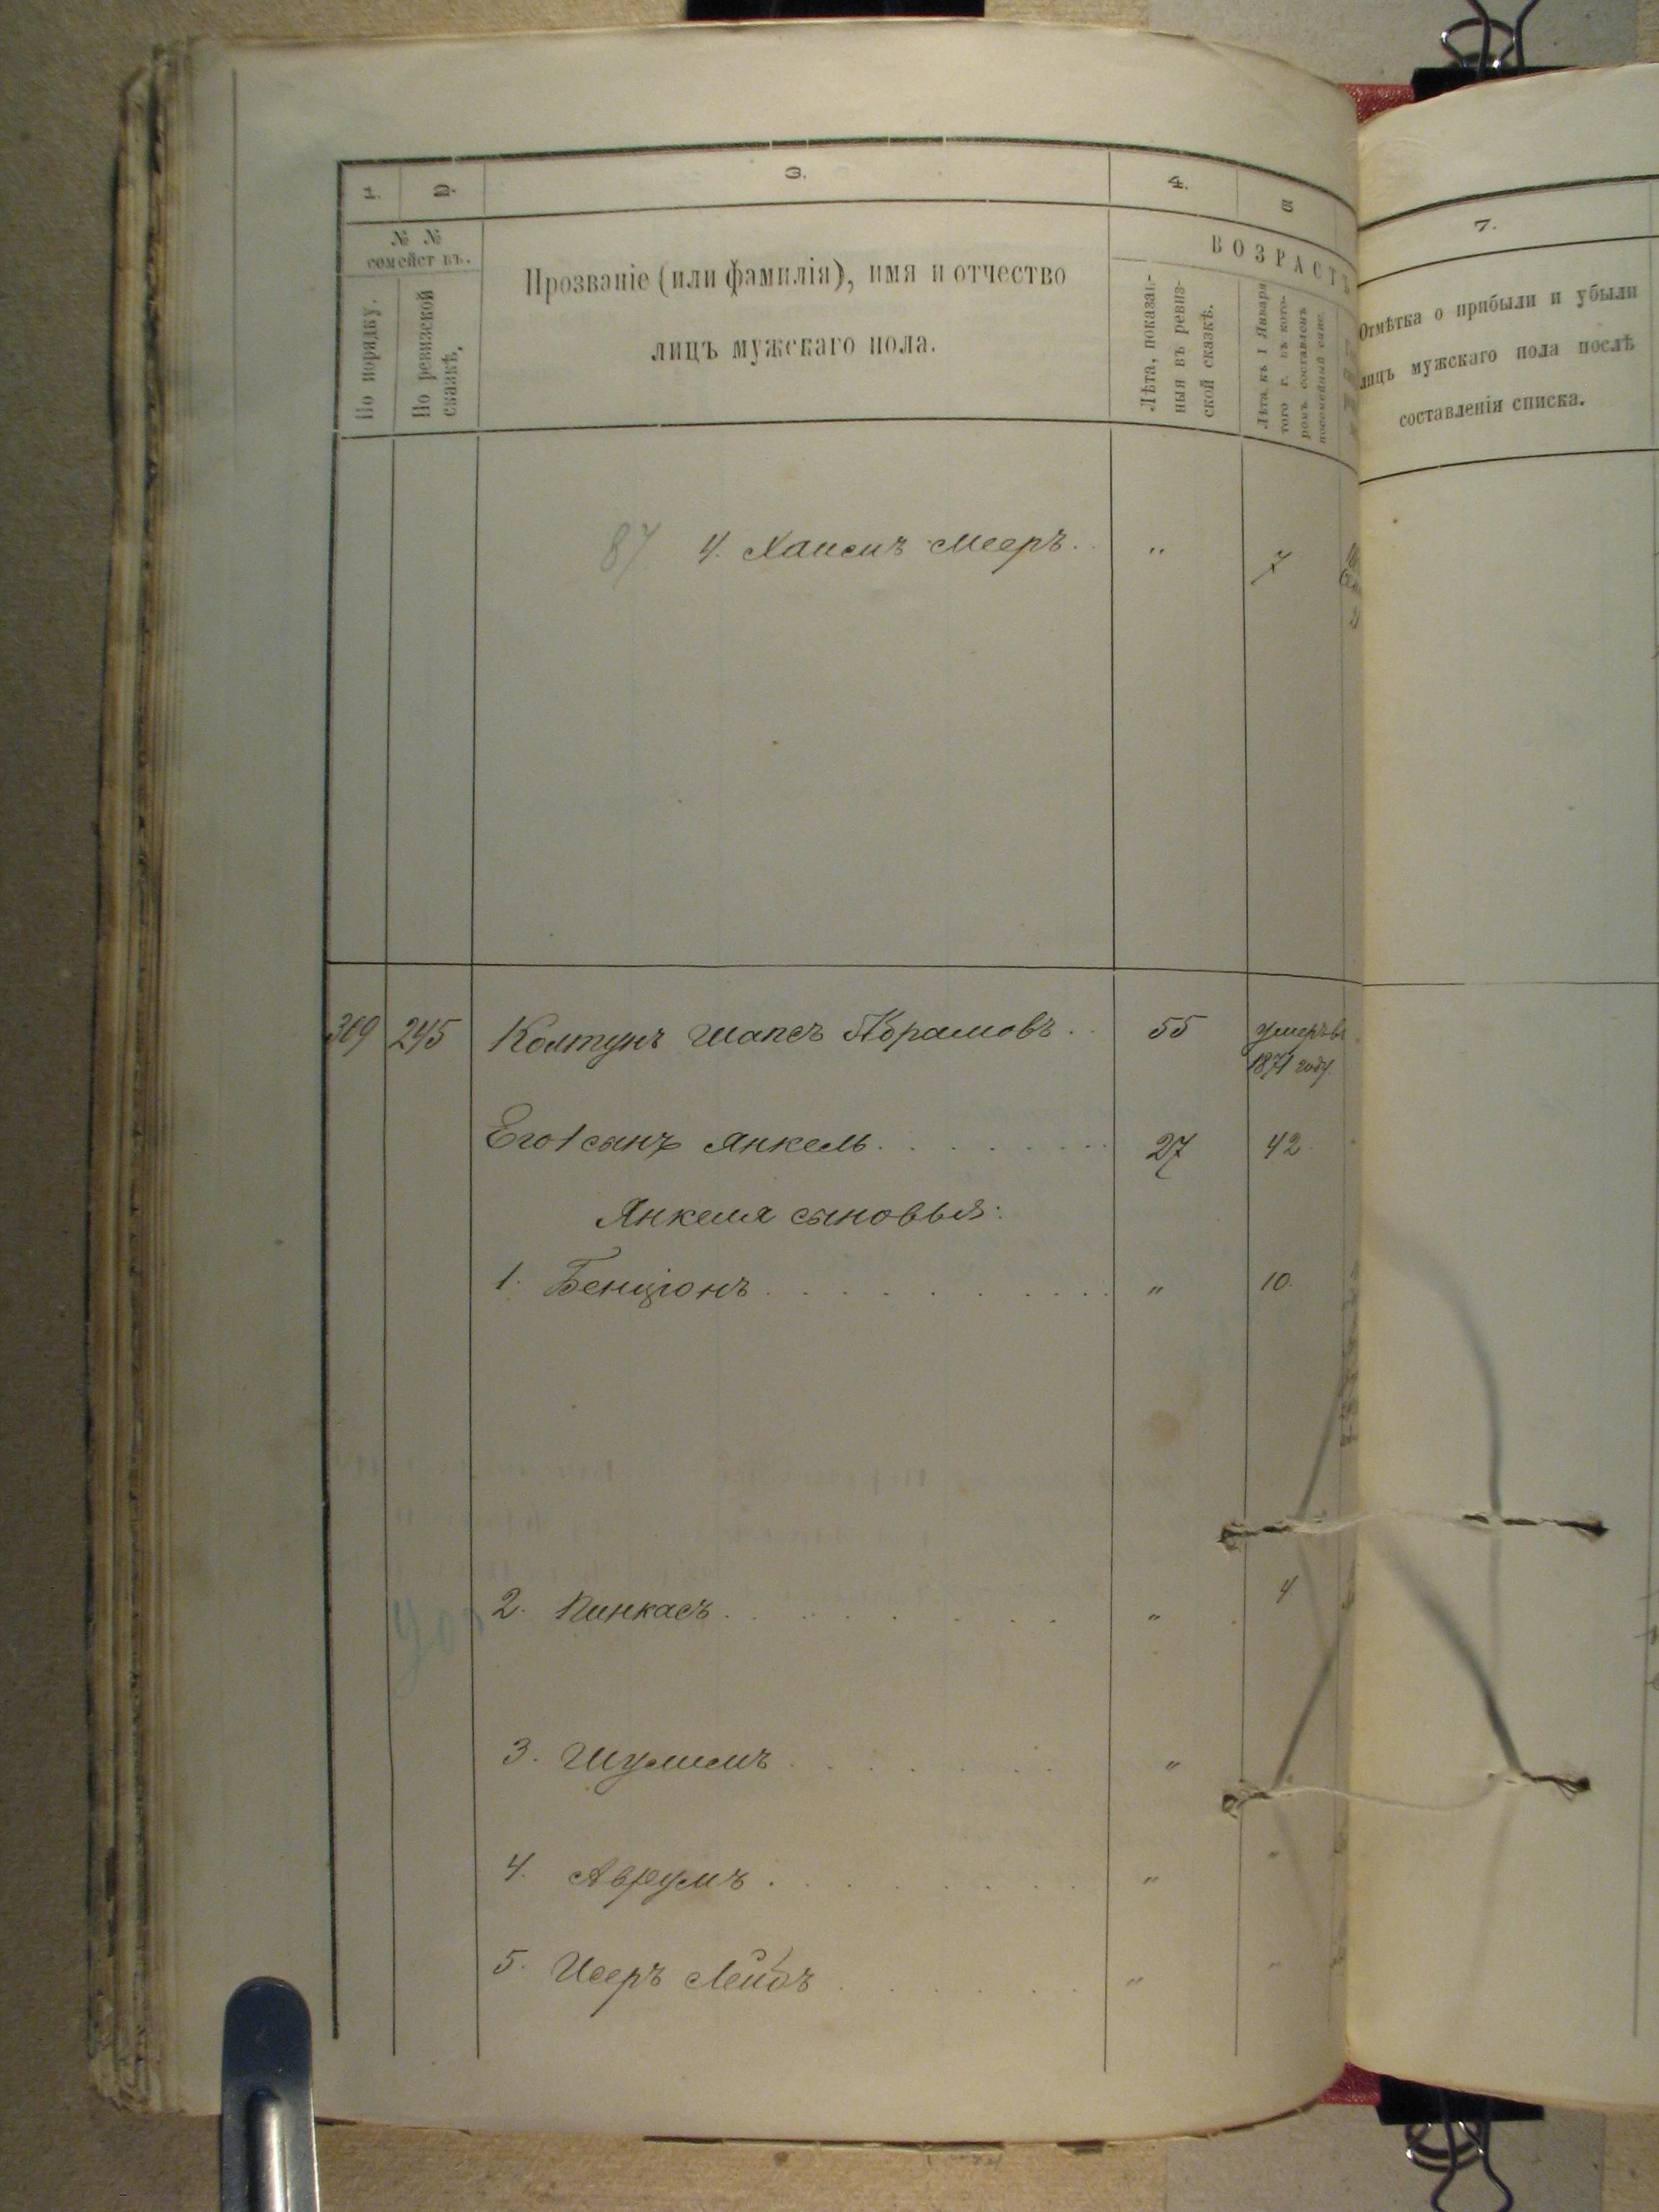 1. 2. 3. 4. 5
№ № семействъ.
По порядку.
По ревизской сказкѣ.
Прозваніе (или фамилія), имя и отчество
лицъ мужскаго пола.
ВОЗРАСТЪ
Лѣта, показан-
ныя въ ревиз-
ской сказкѣ.
Лѣта къ 1 Января
того г. въ кото-
ромъ составленъ
посемейный спис.
7.
Отмѣтка о прибыли и убыли
лицъ мужскаго пола послѣ
составленія списка.
87 4. Хаимъ Мееръ . . " 7
309 245 Колтунъ Шапсъ Абрамовъ . . 55 умеръ въ
1871 году.
Его 1 сынъ Янкель . . . . . . . 27 42
Янкеля сыновья:
1. Бенціонъ . . . . . . . . . " 10.
2. Пинкасъ . . . . . . . . " 4
3. Шулимъ . . . . . . "
4. Аврумъ . . . . . . . . " "
5. Исеръ Лейбъ . . . . . . " "